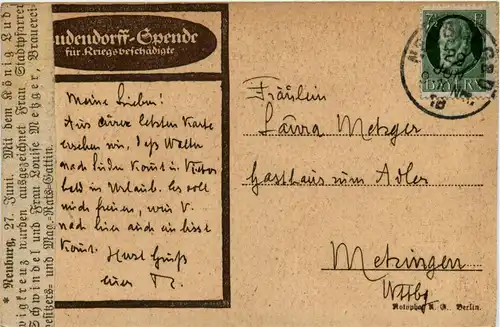 * Neuburg, 27. Juni. Mit dem König Lud-
wigkreuz wurden ausgezeichnet Frau Stadtpfarrer
Schwindel und Frau Louise Metzger, Brauerei-
besitzers- und Mag.-Rats-Gattin.
udendorff-Spende
für Kriegsbeschädigte
Meine Lieben!
Aus eurer letzten Karte
ersehen wir, daß Walter
nach Süden kommt u. Viktor
bald in Urlaub. Es soll
mich freuen, wenn V.
nach hier auch ein bisst
kommt. Herzl. Gruß
euer
Fräulein
Laura Metzger
Gasthaus zum Adler
Metzingen
Wttbg
Rotophot A. G. Berlin.
BAYERN
18